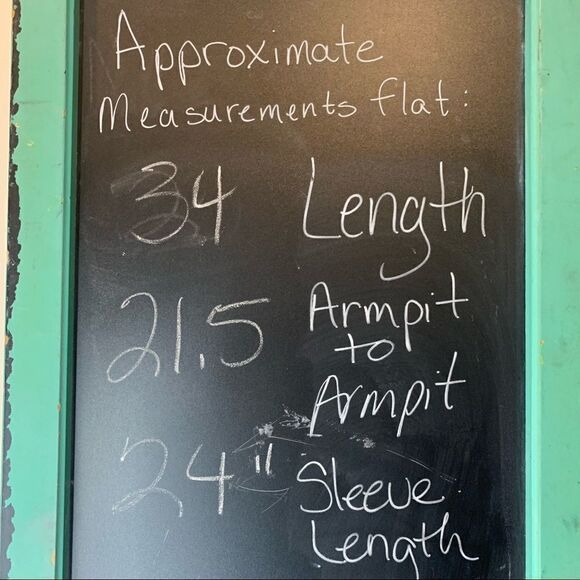 Approximate
Measurements flat:
34 Length
21.5 Armpit
to
Armpit
24" Sleeve
Length